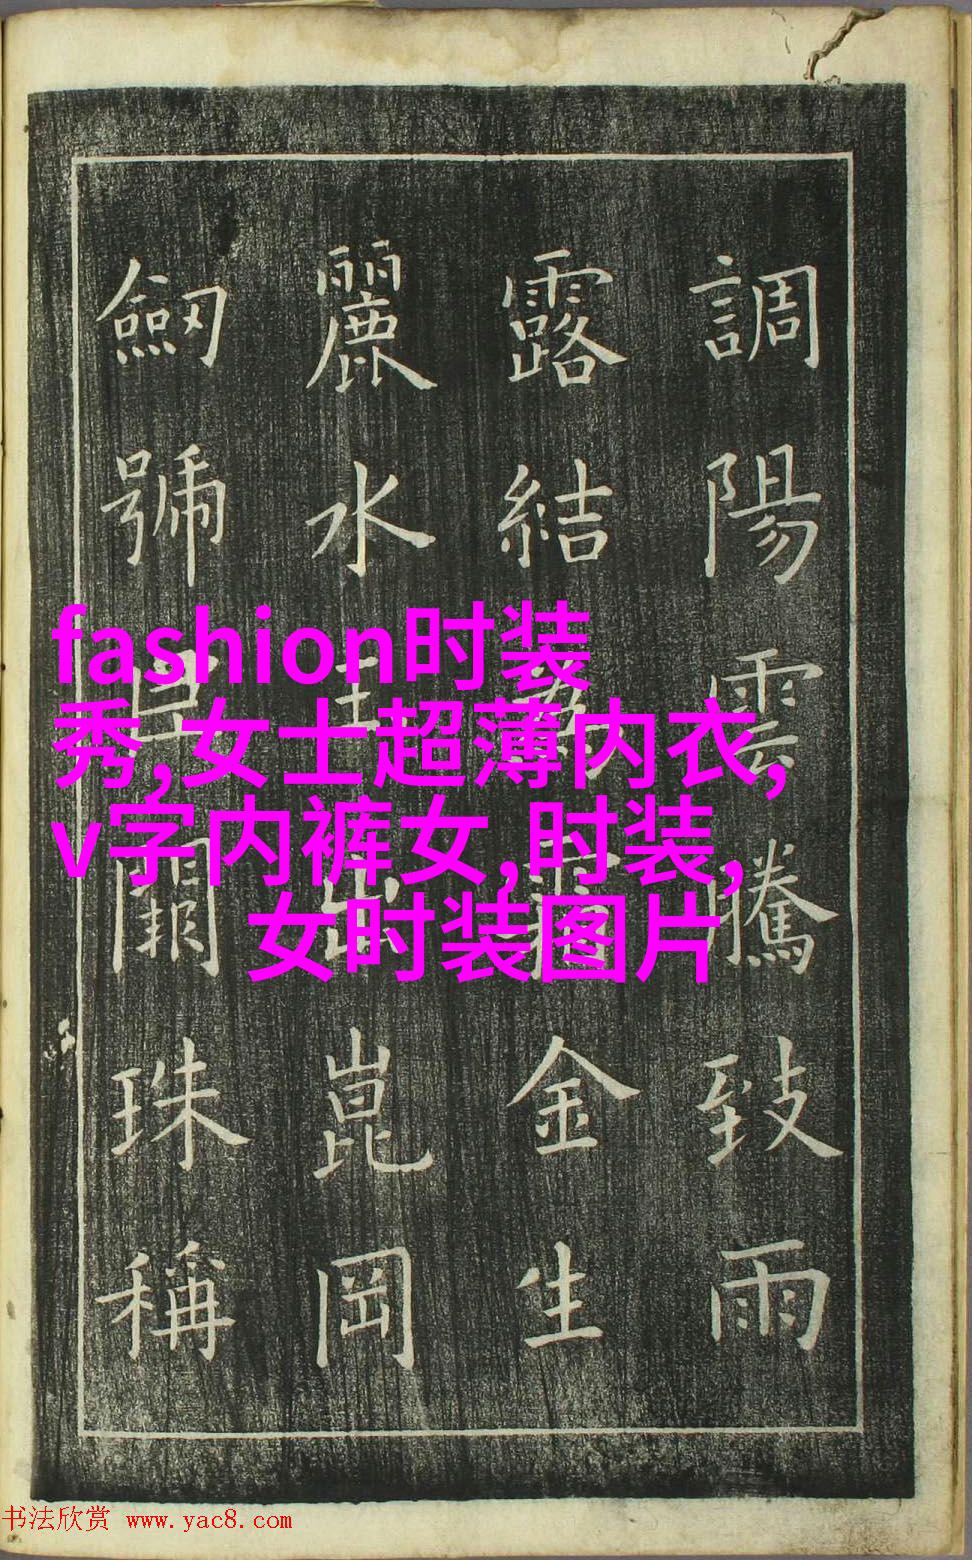 調陽雲騰致雨
露結金生
麗水出崑岡
劒號巨闕珠稱
fashion时装
秀,女士超薄内衣,
v字内裤女,时装,
女时装图片
书法欣赏 www.yac8.com